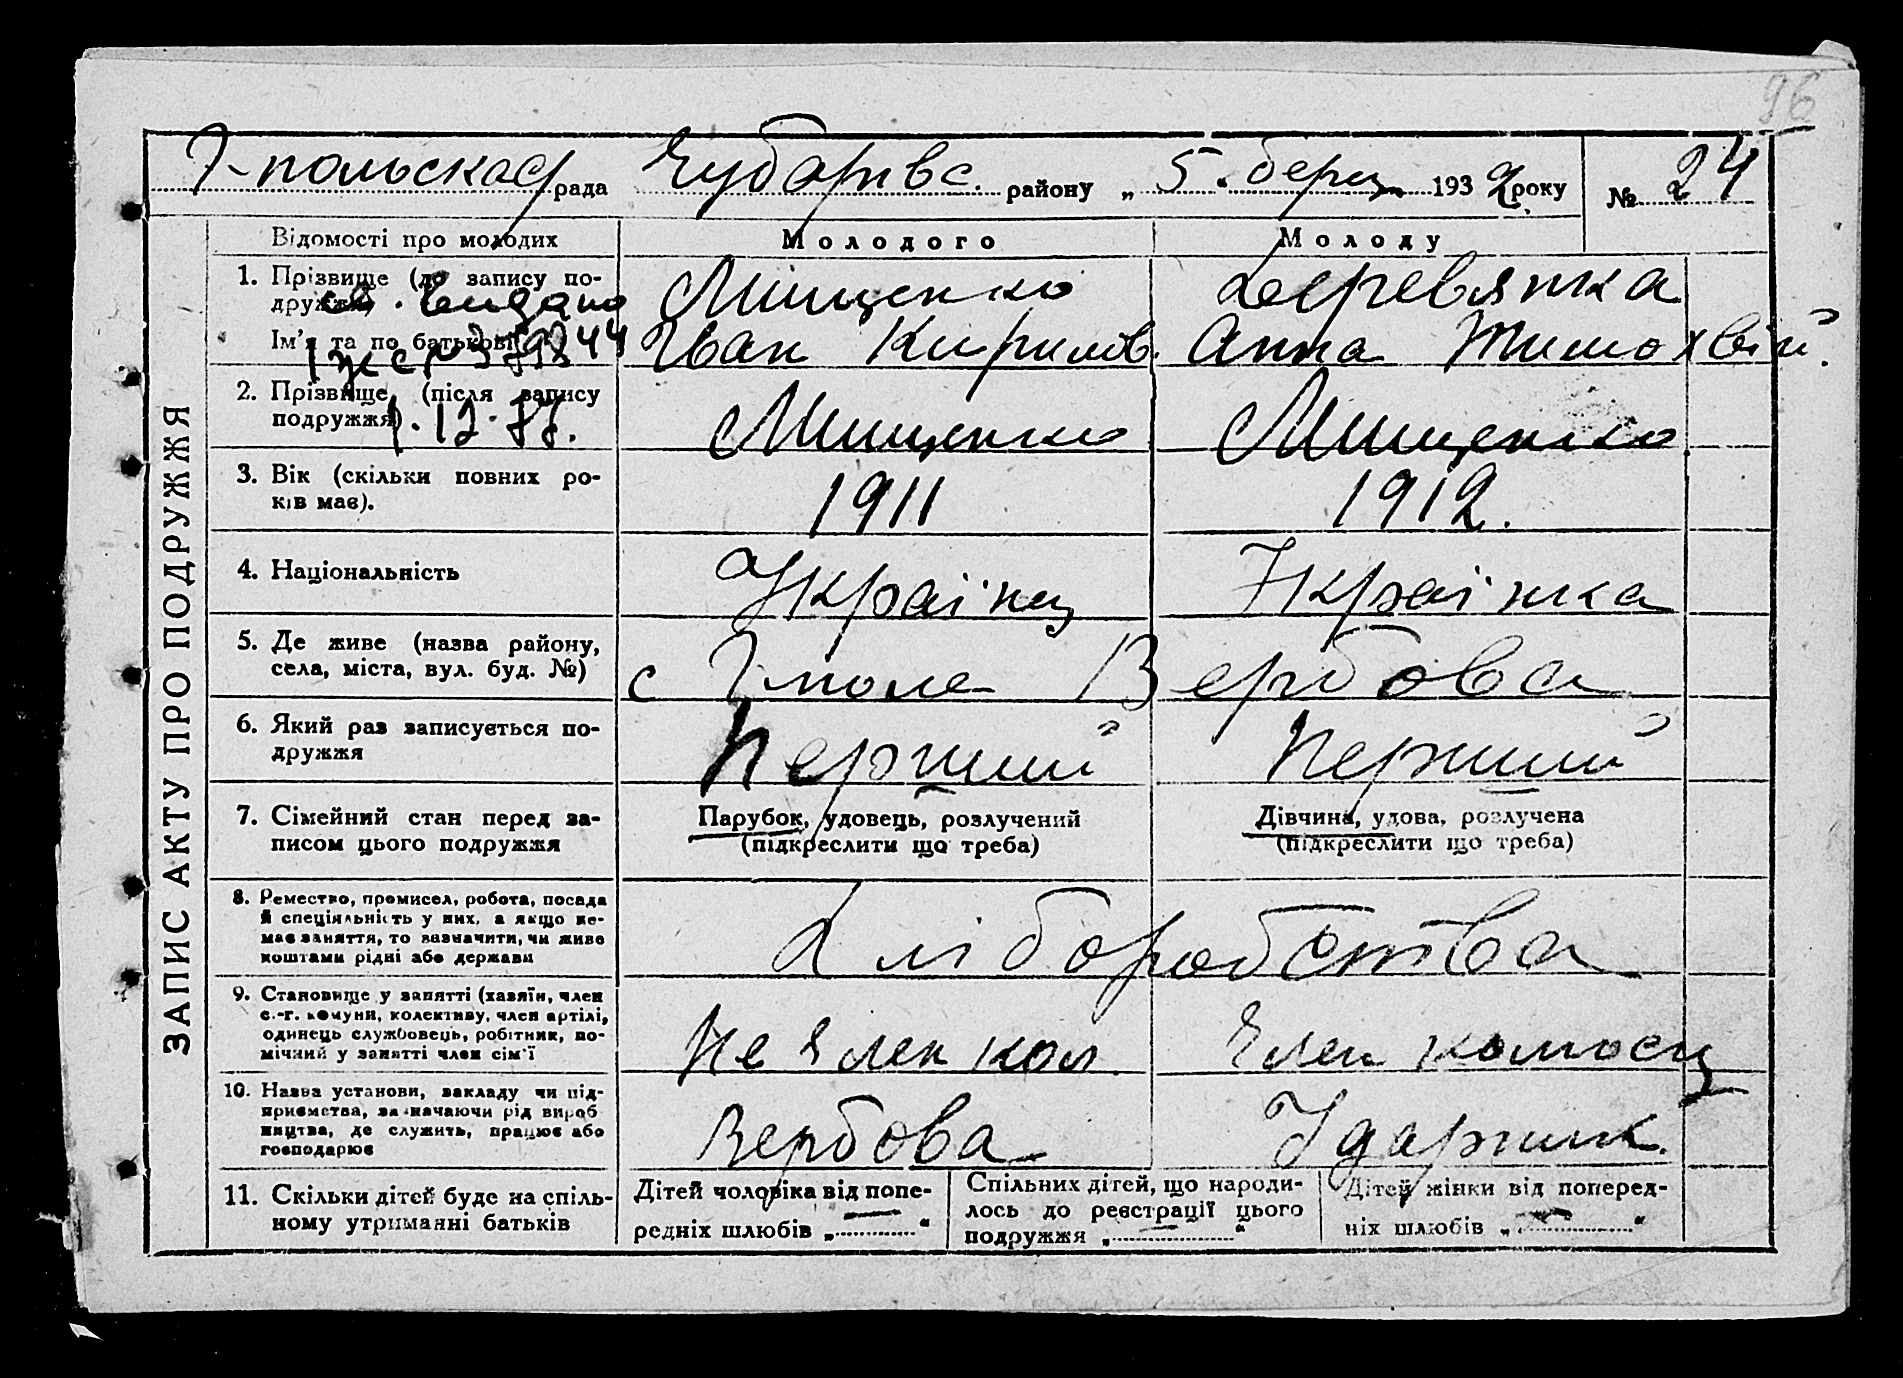 96
Г-польская рада Чубарівс. району „ 5 " берез. 1932 року № 24
ЗАПИС АКТУ ПРО ПОДРУЖЖЯ
Відомості про молодих Молодого Молоду
1. Прізвище (до запису по-
дружжя)
Мищенко Деревянка
св. видано
Ім'я та по батькові
Іван Кирилов. Анна Тимохвій.
2. Прізвище (після запису
подружжя)
Мищенко Мищенко
1.12.77.
3. Вік (скільки повних ро-
ків має).
1911 1912.
4. Національність
Українц Українка
5. Де живе (назва району,
села, міста, вул. буд. №)
с Г-поле Вербова
6. Який раз записується по-
дружжя
Перший Перший
7. Сімейний стан перед за-
писом цього подружжя
Парубок, удовець, розлучений
(підкреслити що треба)
Дівчина, удова, розлучена
(підкреслити що треба)
8. Ремество, промисел, робота, посада
й спеціяльність у них, а якщо не-
має заняття, то зазначити, чи живе
коштами рідні або держави
Хліборобства
9. Становище у занятті (хазяїн, член
с.-г. комуни, колективу, член артілі,
одинець службовець, робітник, по-
мічний у занятті член сім'ї
Не член кол. Член колгосп
10. Назва установи, закладу чи під-
приємства, зазначаючи рід вироб
ництва, де служить, працює або
господарює
Вербова Ударник.
11. Скільки дітей буде на спіль-
ному утриманні батьків
Дітей чоловіка від попе-
редніх шлюбів „ — "
Спільних дітей, що народи-
лось до реєстрації цього
подружжя „ — "
Дітей жінки від поперед-
ніх шлюбів „ — "